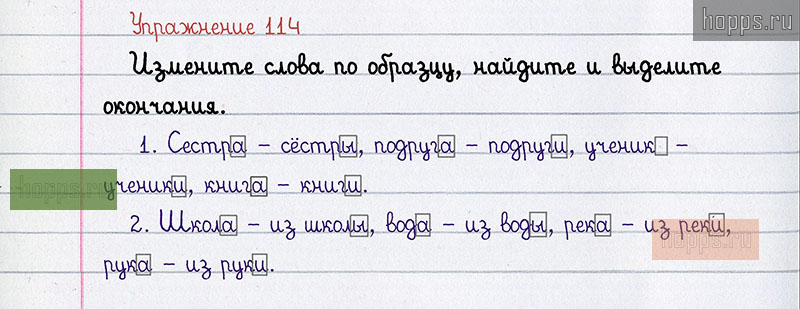 Упражнение 114
hopps.ru
Измените слова по образцу, найдите и выделите
окончания.
1. Сестра – сёстры, подруга – подруги, ученик –
hopps.ru
ученики, книга – книги.
2. Школа – из школы, вода – из воды, река – из реки,
hopps.ru
рука – из руки.